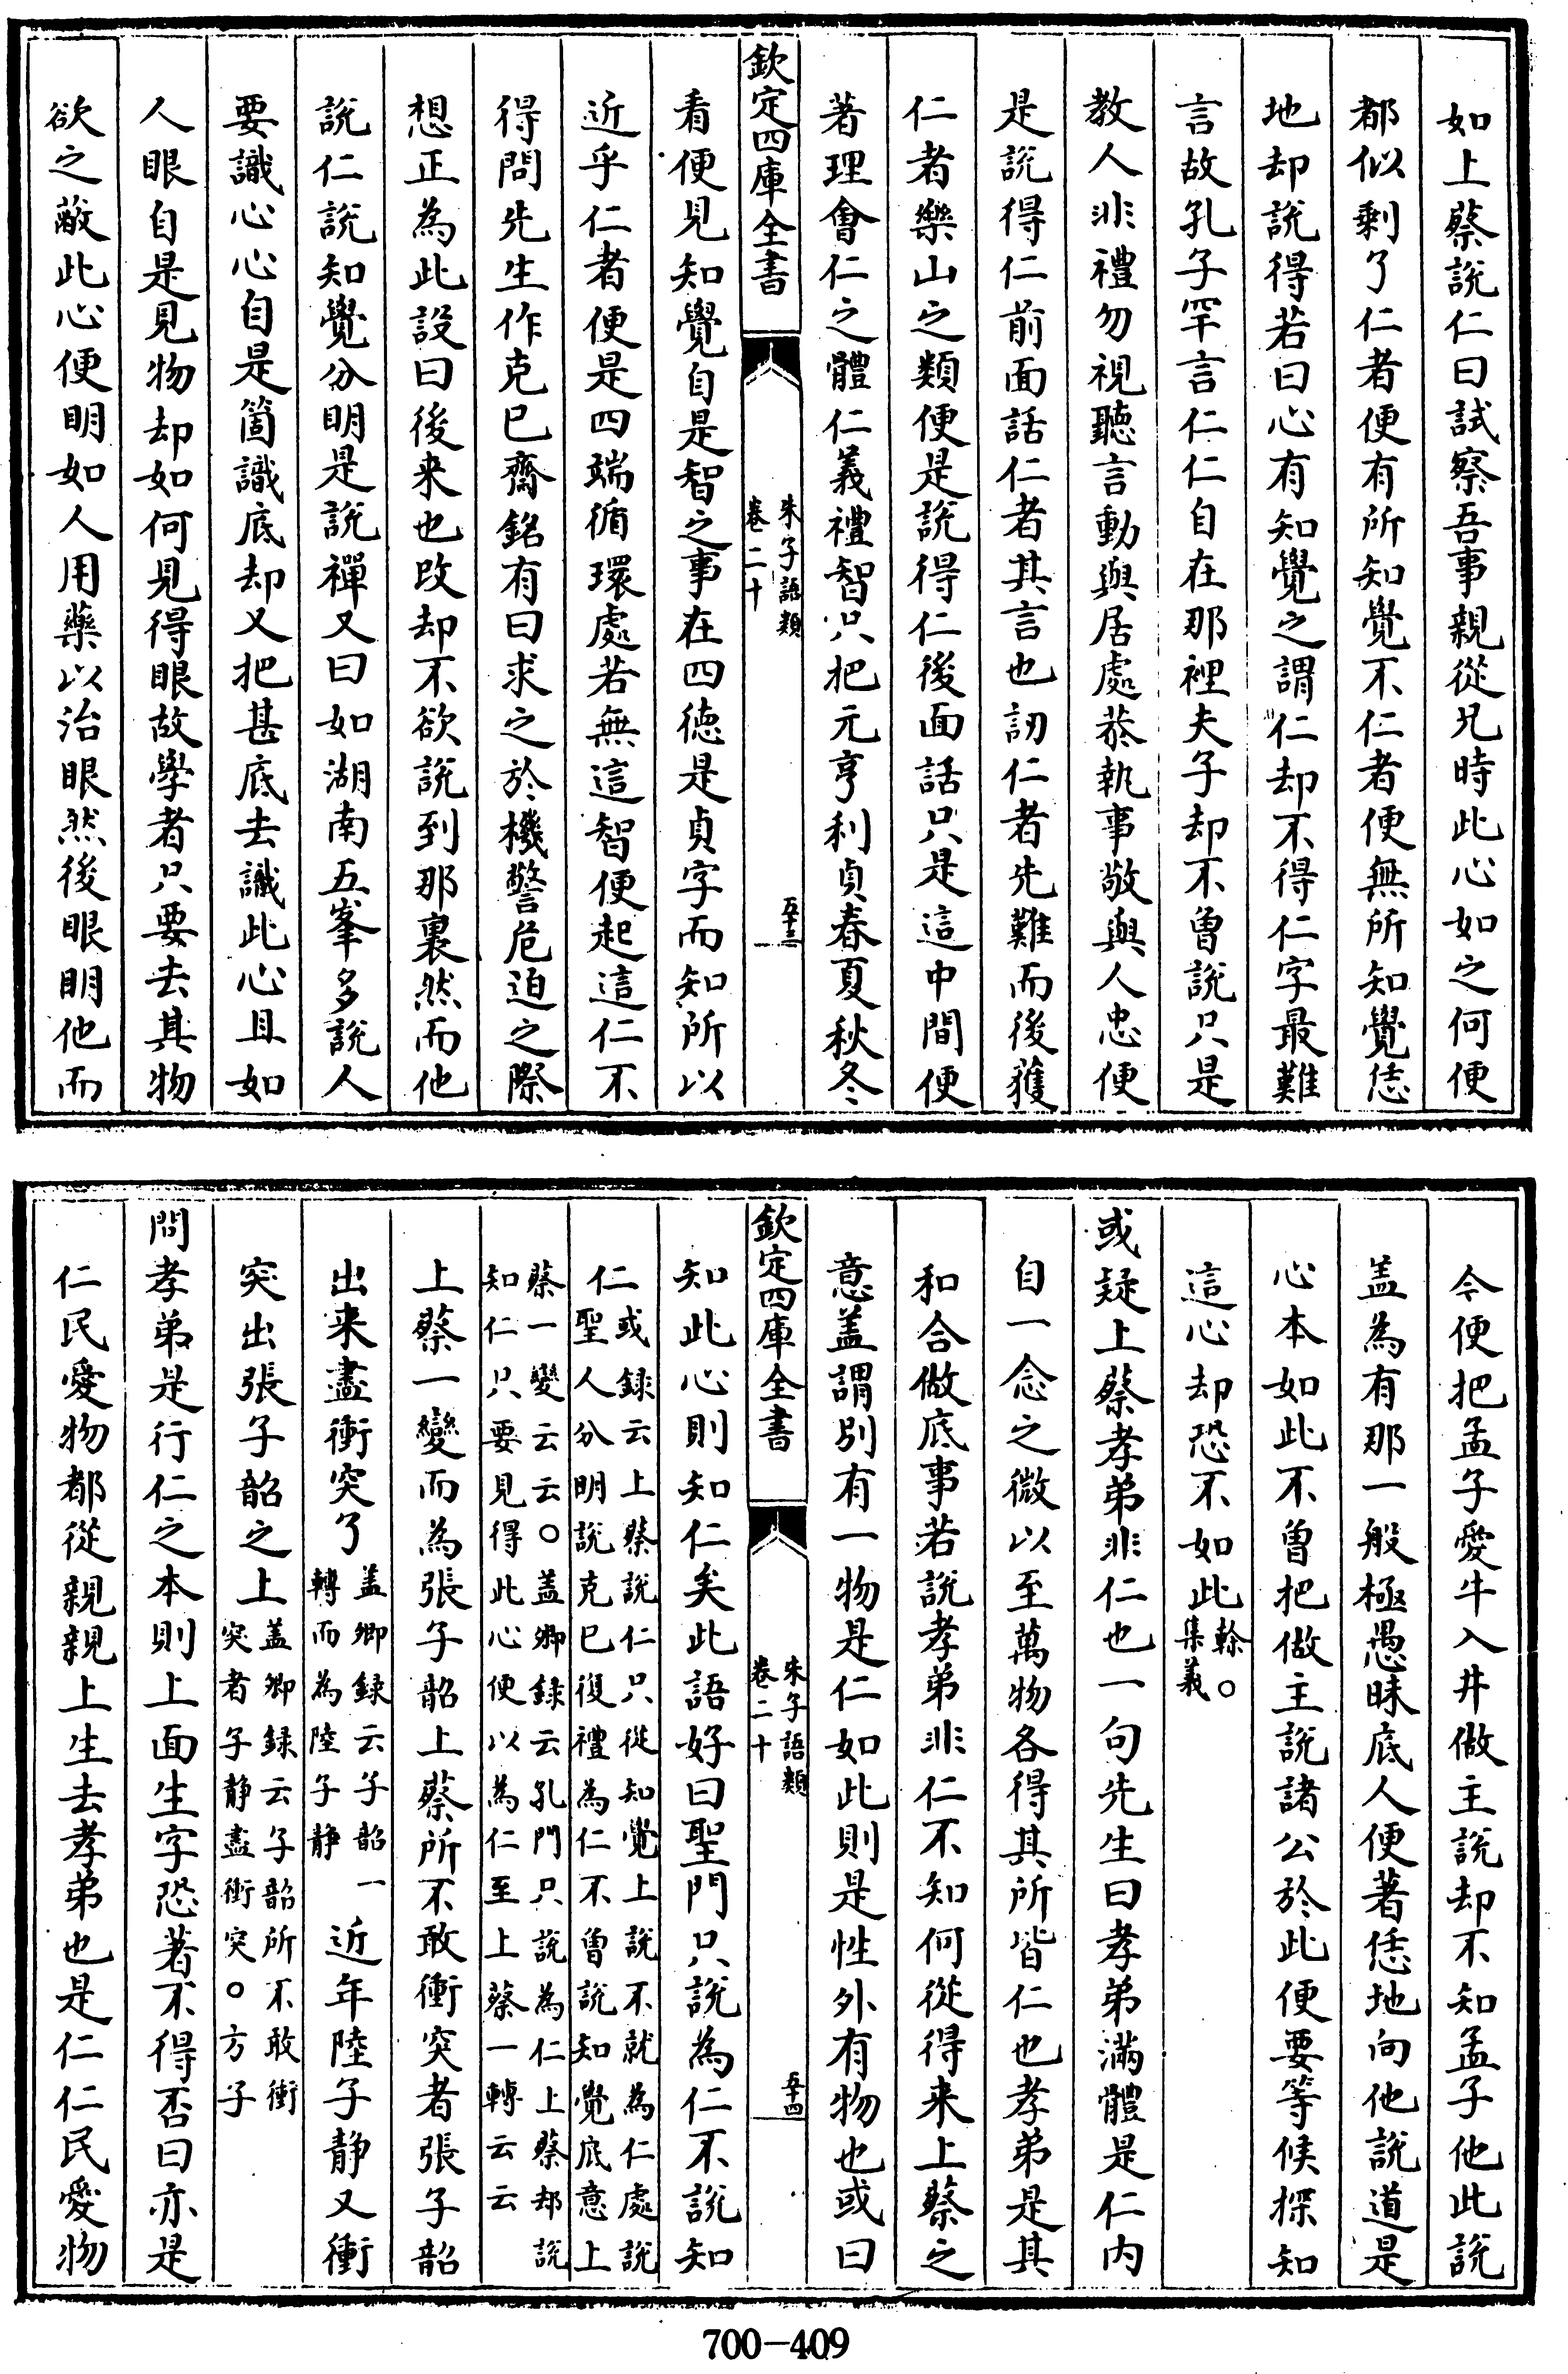 如上蔡説仁曰試察吾事親從兄時此心如之何便
都似剩了仁者便有所知覺不仁者便無所知覺恁
地却説得若曰心有知覺之謂仁却不得仁字最難
言故孔子罕言仁仁自在那裡夫子却不曽説只是
教人非禮勿視聽言動與居處恭執事敬與人忠便
是説得仁前面話仁者其言也訒仁者先難而後獲
仁者樂山之類便是説得仁後面話只是這中間便
著理會仁之體仁義禮智只把元亨利貞春夏秋冬
欽定四庫全書
朱子語類
卷二十
五十三
看便見知覺自是智之事在四徳是貞字而知所以
近乎仁者便是四端循環處若無這智便起這仁不
得問先生作克已齋銘有曰求之於機警危迫之際
想正為此設曰後来也改却不欲説到那裏然而他
説仁説知覺分明是説禪又曰如湖南五峯多説人
要識心心自是箇識底却又把甚底去識此心且如
人眼自是見物却如何見得眼故學者只要去其物
欲之蔽此心便明如人用藥以治眼然後眼明他而
今便把孟子愛牛入井做主説却不知孟子他此説
盖為有那一般極愚昧底人便著恁地向他説道是
心本如此不曽把做主説諸公於此便要等候探知
這心却恐不如此榦○
集義
或疑上蔡孝弟非仁也一句先生曰孝弟滿體是仁内
自一念之微以至萬物各得其所皆仁也孝弟是其
和合做底事若説孝弟非仁不知何從得来上蔡之
意盖謂别有一物是仁如此則是性外有物也或曰
欽定四庫全書
朱子語類
卷二十
五十四
知此心則知仁矣此語好曰聖門只説為仁不説知
仁或録云上蔡説仁只從知覺上説不就為仁處説
聖人分明説克已復禮為仁不曽説知覺底意上
蔡一變云云○盖卿録云孔門只説為仁上蔡却説
知仁只要見得此心便以為仁至上蔡一轉云云
上蔡一變而為張子韶上蔡所不敢衝突者張子韶
出来盡衝突了盖卿録云子韶一
轉而為陸子静
近年陸子静又衝
突出張子韶之上盖卿録云子韶所不敢衝
突者子静盡衝突○方子
問孝弟是行仁之本則上面生字恐著不得否曰亦是
仁民愛物都從親親上生去孝弟也是仁仁民愛物
700-409